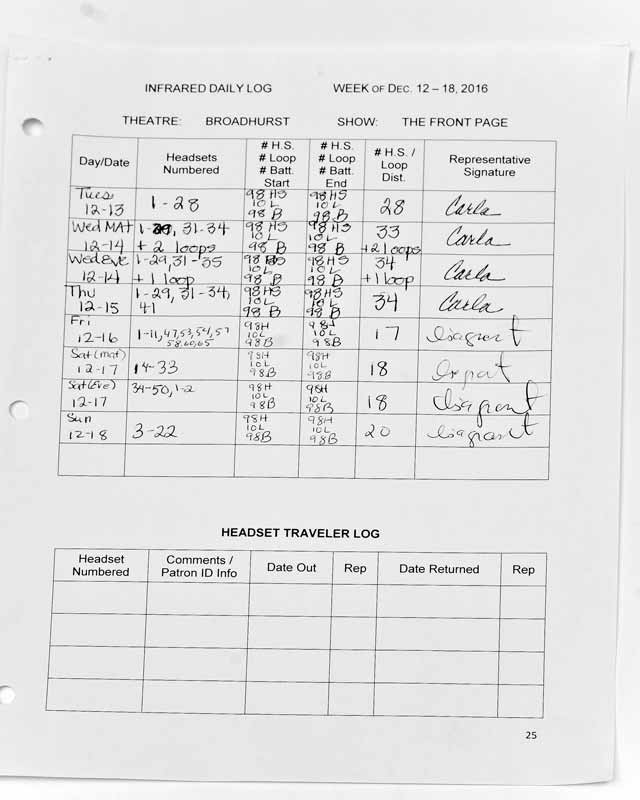 INFRARED DAILY LOG WEEK OF DEC. 12 – 18, 2016
THEATRE: BROADHURST SHOW: THE FRONT PAGE
Day/Date Headsets Numbered # H.S. # Loop # Batt. Start # H.S. # Loop # Batt. End # H.S. / Loop Dist. Representative Signature
Tues 12-13 1-28 98 HS 10 L 98 B 98 HS 10 L 98 B 28 Carla
Wed MAT 12-14 1-29, 31-34 + 2 loops 98 HS 10 L 98 B 98 HS 10 L 98 B 33 +2 loops Carla
Wed Eve 12-14 1-29, 31-35 +1 loop 98 HS 10 L 98 B 98 HS 10 L 98 B 34 +1 loop Carla
Thu 12-15 1-29, 31-34, 41 98 HS 10 L 98 B 98 HS 10 L 98 B 34 Carla
Fri 12-16 1-11, 47, 53, 54, 57 58, 60, 65 98H 10L 98B 98H 10L 98B 17
Sat (mat) 12-17 14-33 98H 10L 98B 98H 10L 98B 18
Sat (Eve) 12-17 34-50, 1-2 98H 10L 98B 98H 10L 98B 18
Sun 12-18 3-22 98H 10L 98B 98H 10L 98B 20
HEADSET TRAVELER LOG
Headset Numbered Comments / Patron ID Info Date Out Rep Date Returned Rep
25